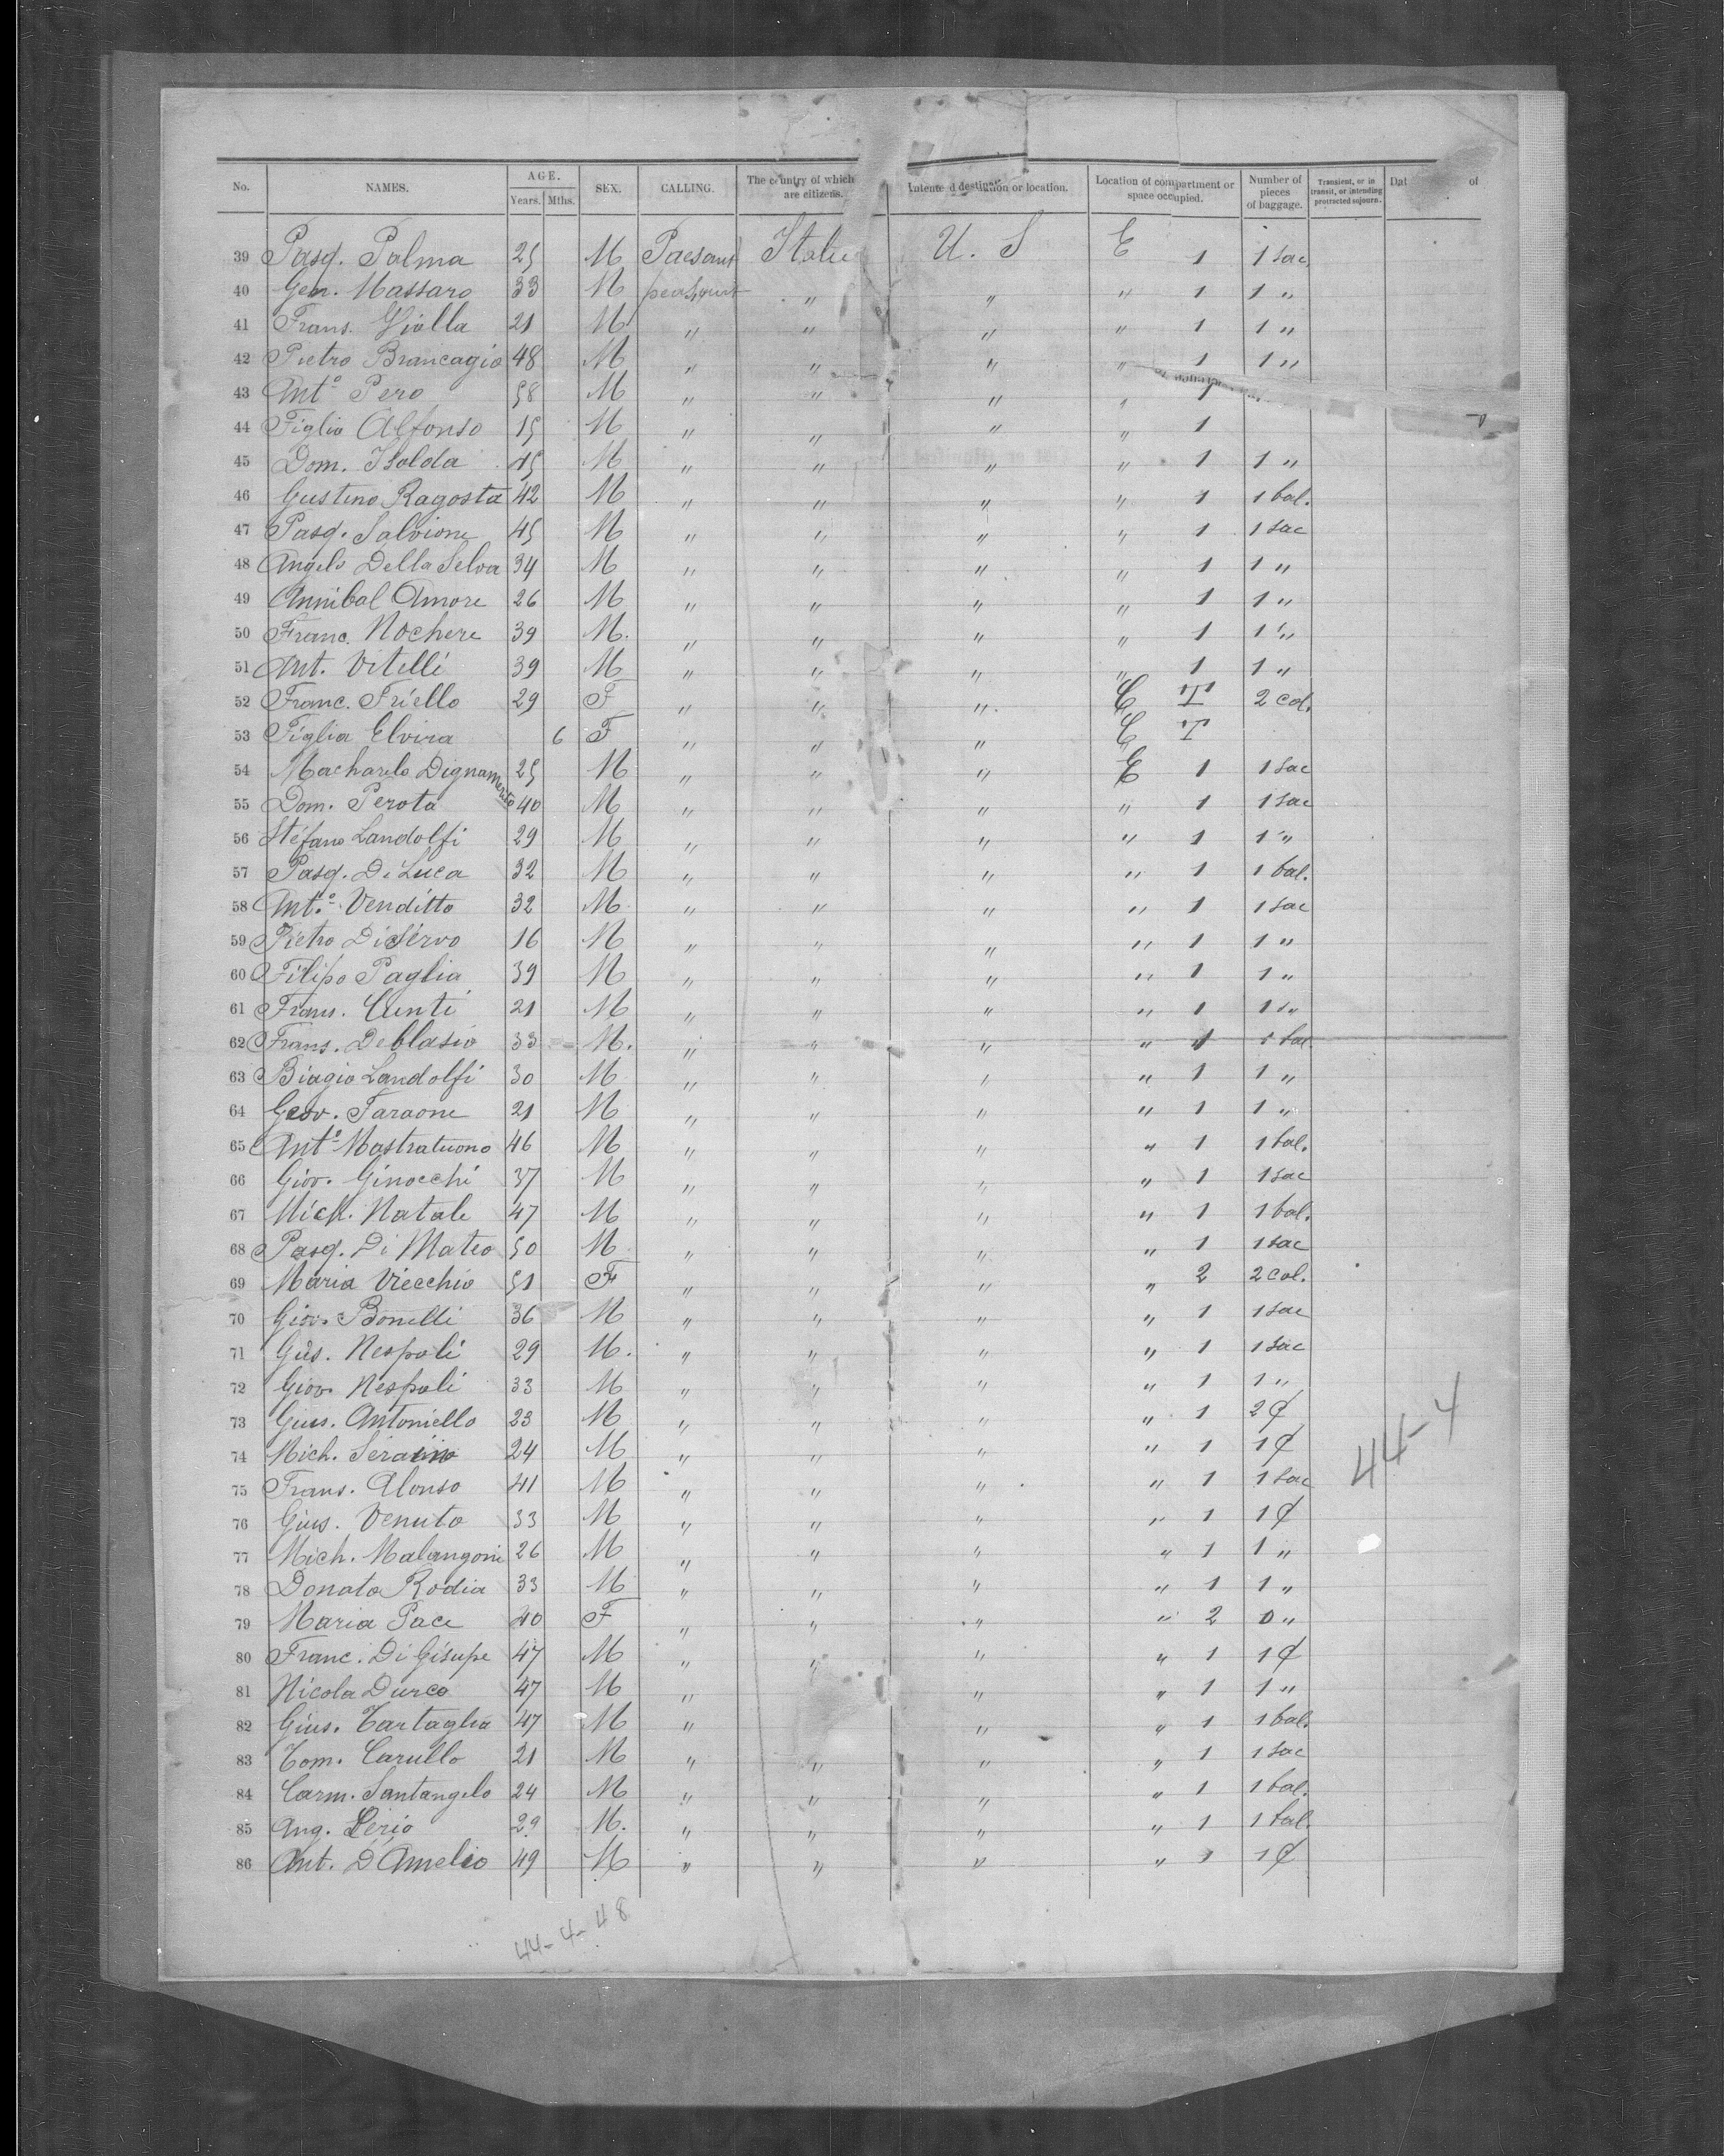 No. NAMES. AGE. Years. Mths. SEX. CALLING. The country of which are citizens. Intended destination or location. Location of compartment or space occupied. Number of pieces of baggage. Transient, or in transit, or intending protracted sojourn. Dat of
39 Pasq. Palma 25 M Paesant Italie U. S E 1 1 sac
40 Gen. Massaro 33 M peasant " " " 1 1 "
41 Frans. Gialla 21 M " " " " 1 1 "
42 Pietro Brancagio 48 M " " " " 1 1 "
43 Antº Pero 58 M " " " "
44 Figlio Alfonso 15 M " " " " 1
45 Dom. Isolda 45 M " " " " 1 1 "
46 Gustino Ragosta 42 M " " " " 1 1 bal.
47 Pasq. Salvione 45 M " " " " 1 1 sac
48 Angelo Della Selva 34 M " " " " 1 1 "
49 Annibal Amore 26 M " " " " 1 1 "
50 Franc. Nochere 39 M. " " " " 1 1 "
51 Ant. Vitelli 39 M " " " " 1 1 "
52 Franc. Friello 29 F " " " C I 2 col.
53 Figlia Elvira 6 F " " " C I
54 Macharelo Dignamerito 25 M " " " E 1 1 sac
55 Dom. Perota 40 M " " " " 1 1 sac
56 Stéfano Landolfi 29 M " " " " 1 1 "
57 Pasq. Di Luca 32 M " " " " 1 1 bal.
58 Antº Venditto 32 M " " " " 1 1 sac
59 Pietro Di Servo 16 M " " " " 1 1 "
60 Filipo Paglia 39 M " " " " 1 1 "
61 Frans. Cunti 21 M " " " " 1 1 "
62 Frans. Deblasio 33 M. " " " " 1 bal
63 Biagio Landolfi 30 M " " " " 1 1 "
64 Geov. Faraone 21 M " " " " 1 1 "
65 Antº Mastratuono 46 M " " " " 1 1 bal.
66 Giov. Ginocchi 37 M " " " " 1 1 sac
67 Mich. Natale 47 M " " " " 1 1 bal.
68 Pasq. Di Mateo 50 M " " " " 1 1 sac
69 Maria Viecchio 51 F " " " " 2 2 col.
70 Giov. Bonelli 36 M " " " " 1 1 sac
71 Gus. Nespoli 29 M. " " " " 1 1 sac
72 Giov. Nespoli 33 M " " " " 1 1 "
73 Gius. Antoniello 23 M " " " " 1 2 ₵
74 Mich. 24 M " " " " 1 1 ₵
75 Frans. Alonso 41 M " " " " 1 1 sac
44-4
76 Gius. Venuto 33 M " " " " 1 1 ₵
77 Mich. Malangoni 26 M " " " " 1 1 "
78 Donato Rodia 33 M " " " " 1 1 "
79 Maria Pace 40 F " " " " 2 0 "
80 Franc. Di Gisupe 47 M " " " " 1 1 ₵
81 Nicola Durco 47 M " " " 1 1 "
82 Gius. Tartaglia 47 M " " " 1 1 bal.
83 Tom. Carullo 21 M " " " " 1 1 sac
84 Carm. Santangelo 24 M " " " " 1 1 bal.
85 Ang. Lerio 29 M. " " " " 1 1 bal.
86 Ant. D'Amelio 49 M " " " " 1 1 ₵
44-4-48